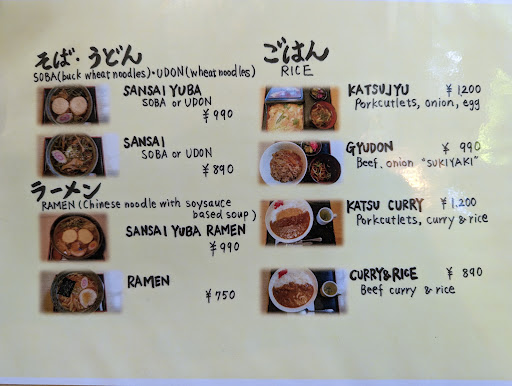 そば・うどん
SOBA(buck wheat noodles)・UDON(wheat noodles)
SANSAI YUBA
SOBA or UDON
￥990
SANSAI
SOBA or UDON
￥890
ラーメン
RAMEN (Chinese noodle with soysauce
based soup)
SANSAI YUBA RAMEN
￥990
RAMEN
￥750
ごはん
RICE
KATSUJYU ￥1,200
Porkcutlets, onion, egg
GYUDON ￥990
Beef, onion "SUKIYAKI"
KATSU CURRY ￥1,200
Porkcutlets, curry & rice
CURRY&RICE ￥890
Beef curry & rice